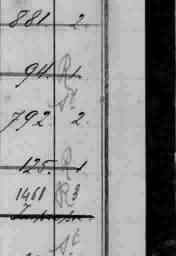 881 2.
94. R 1
St
792. 2.
125. R 1
1461 R 3
St